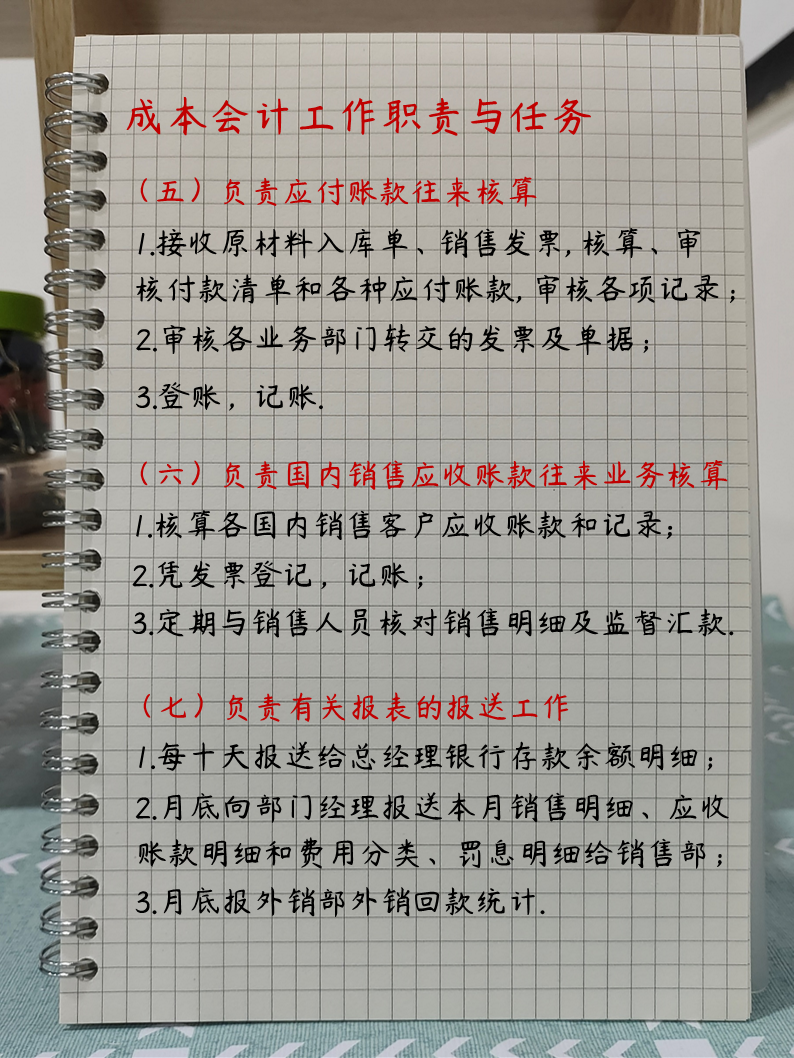 成本会计工作职责与任务
（五）负责应付账款往来核算
1.接收原材料入库单、销售发票,核算、审
核付款清单和各种应付账款,审核各项记录；
2.审核各业务部门转交的发票及单据；
3.登账，记账.
（六）负责国内销售应收账款往来业务核算
1.核算各国内销售客户应收账款和记录；
2.凭发票登记，记账；
3.定期与销售人员核对销售明细及监督汇款.
（七）负责有关报表的报送工作
1.每十天报送给总经理银行存款余额明细；
2.月底向部门经理报送本月销售明细、应收
账款明细和费用分类、罚息明细给销售部；
3.月底报外销部外销回款统计.